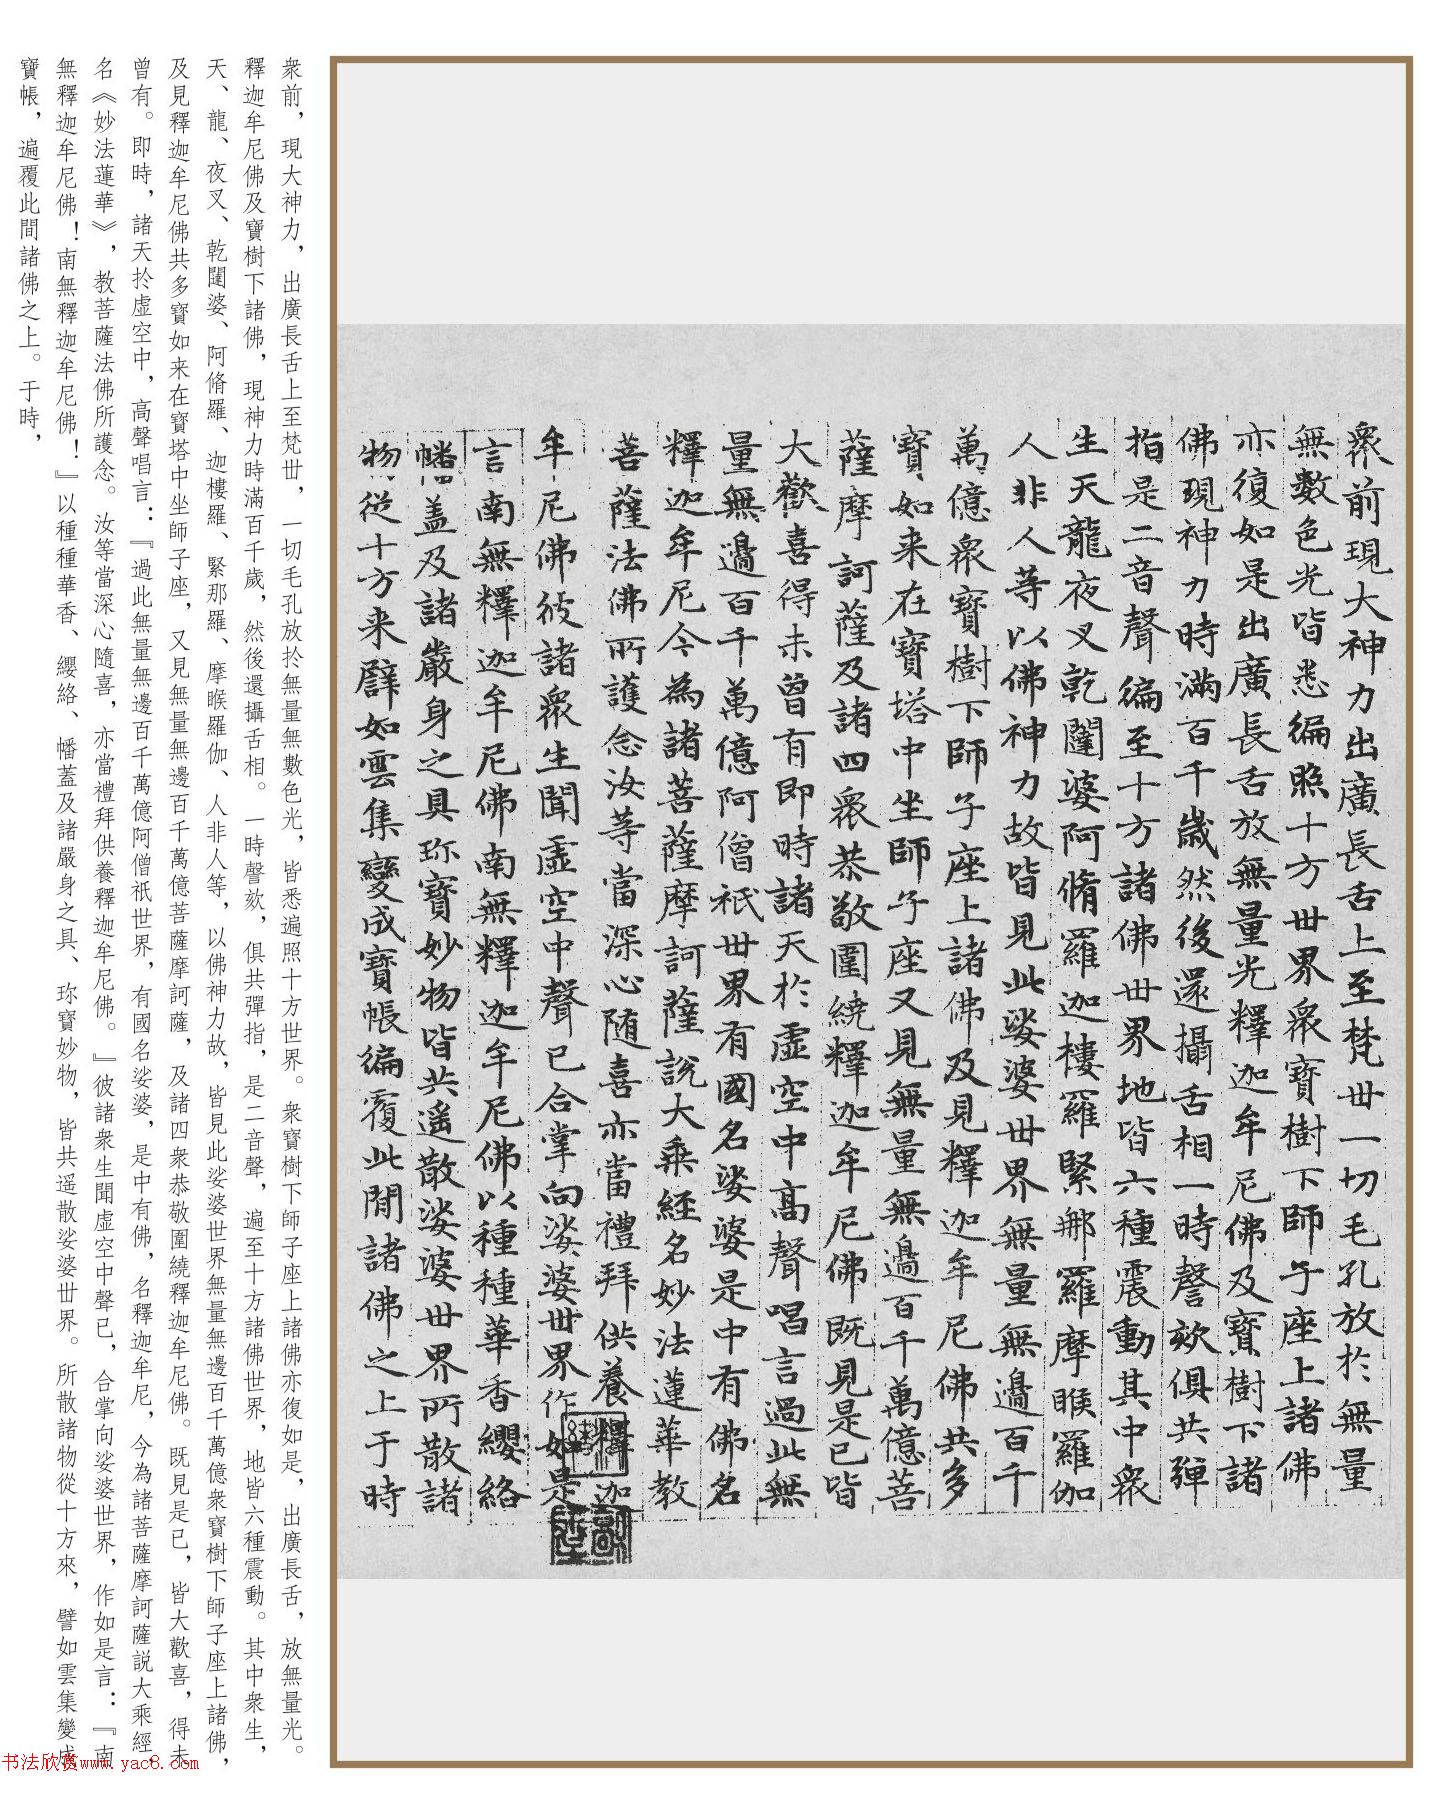 衆前現大神力出廣長舌上至梵丗一切毛孔放於無量
無數色光皆悉徧照十方丗界衆寶樹下師子座上諸佛
亦復如是出廣長舌放無量光釋迦牟尼佛及寶樹下諸
佛現神力時滿百千歲然後還攝舌相一時謦欬俱共彈
指是二音聲徧至十方諸佛丗界地皆六種震動其中衆
生天龍夜叉乾闥婆阿脩羅迦樓羅緊那羅摩睺羅伽
人非人等以佛神力故皆見此娑婆丗界無量無邊百千
萬億衆寶樹下師子座上諸佛及見釋迦牟尼佛共多
寶如来在寶塔中坐師子座又見無量無邊百千萬億菩
薩摩訶薩及諸四衆恭敬圍繞釋迦牟尼佛既見是已皆
大歡喜得未曾有即時諸天於虛空中高聲唱言過此無
量無邊百千萬億阿僧祇丗界有國名娑婆是中有佛名
釋迦牟尼今為諸菩薩摩訶薩說大乘経名妙法蓮華教
菩薩法佛所護念汝等當深心随喜亦當禮拜供養釋迦
牟尼佛彼諸衆生聞虛空中聲已合掌向娑婆丗界作如是
言南無釋迦牟尼佛南無釋迦牟尼佛以種種華香纓絡
幡盖及諸嚴身之具珎寶妙物皆共遥散娑婆丗界所散諸
物從十方来譬如雲集變成寶帳徧覆此間諸佛之上于時
衆前，現大神力，出廣長舌上至梵丗，一切毛孔放於無量無數色光，皆悉遍照十方世界。衆寶樹下師子座上諸佛亦復如是，出廣長舌，放無量光。
釋迦牟尼佛及寶樹下諸佛，現神力時滿百千歲，然後還攝舌相。一時謦欬，俱共彈指，是二音聲，遍至十方諸佛世界，地皆六種震動。其中衆生，
天、龍、夜叉、乾闥婆、阿脩羅、迦樓羅、緊那羅、摩睺羅伽、人非人等，以佛神力故，皆見此娑婆世界無量無邊百千萬億衆寶樹下師子座上諸佛，
及見釋迦牟尼佛共多寶如来在寶塔中坐師子座，又見無量無邊百千萬億菩薩摩訶薩，及諸四衆恭敬圍繞釋迦牟尼佛。既見是已，皆大歡喜，得未
曾有。即時，諸天扵虛空中，高聲唱言：『過此無量無邊百千萬億阿僧祇世界，有國名娑婆，是中有佛，名釋迦牟尼，今為諸菩薩摩訶薩説大乘經，
名《妙法蓮華》，教菩薩法佛所護念。汝等當深心隨喜，亦當禮拜供養釋迦牟尼佛。』彼諸衆生聞虛空中聲已，合掌向娑婆世界，作如是言：『南
無釋迦牟尼佛！南無釋迦牟尼佛！』以種種華香、纓絡、幡蓋及諸嚴身之具、珎寶妙物，皆共遥散娑婆丗界。所散諸物從十方來，譬如雲集變成
寶帳，遍覆此間諸佛之上。于時，
书法欣赏www.yac8.com